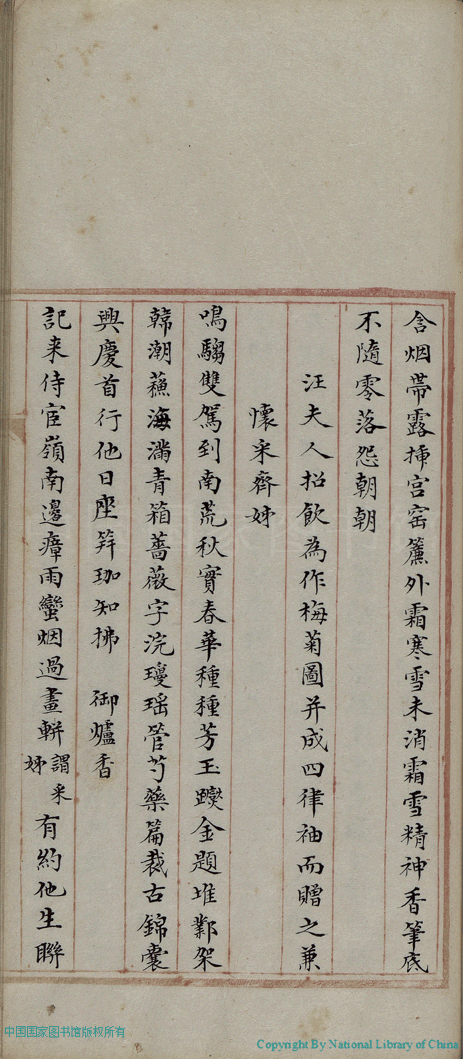 含烟帶露插宮窑簾外霜寒雪未消霜雪精神香筆底
不隨零落怨朝朝
汪夫人招飲為作梅菊圖并成四律袖而贈之兼
懷采齊姊
鳴騶雙駕到南荒秋實春華種種芳玉躞金題堆鄴架
韓潮蘓海滿青箱薔薇字浣瓊瑶管芍藥篇裁古錦囊
興慶首行他日座笄珈知拂 御爐香
記来侍宦嶺南邊瘴雨蠻烟過畫軿謂采姊有約他生聯
中国国家图书馆版权所有
Copyright By National Library of China